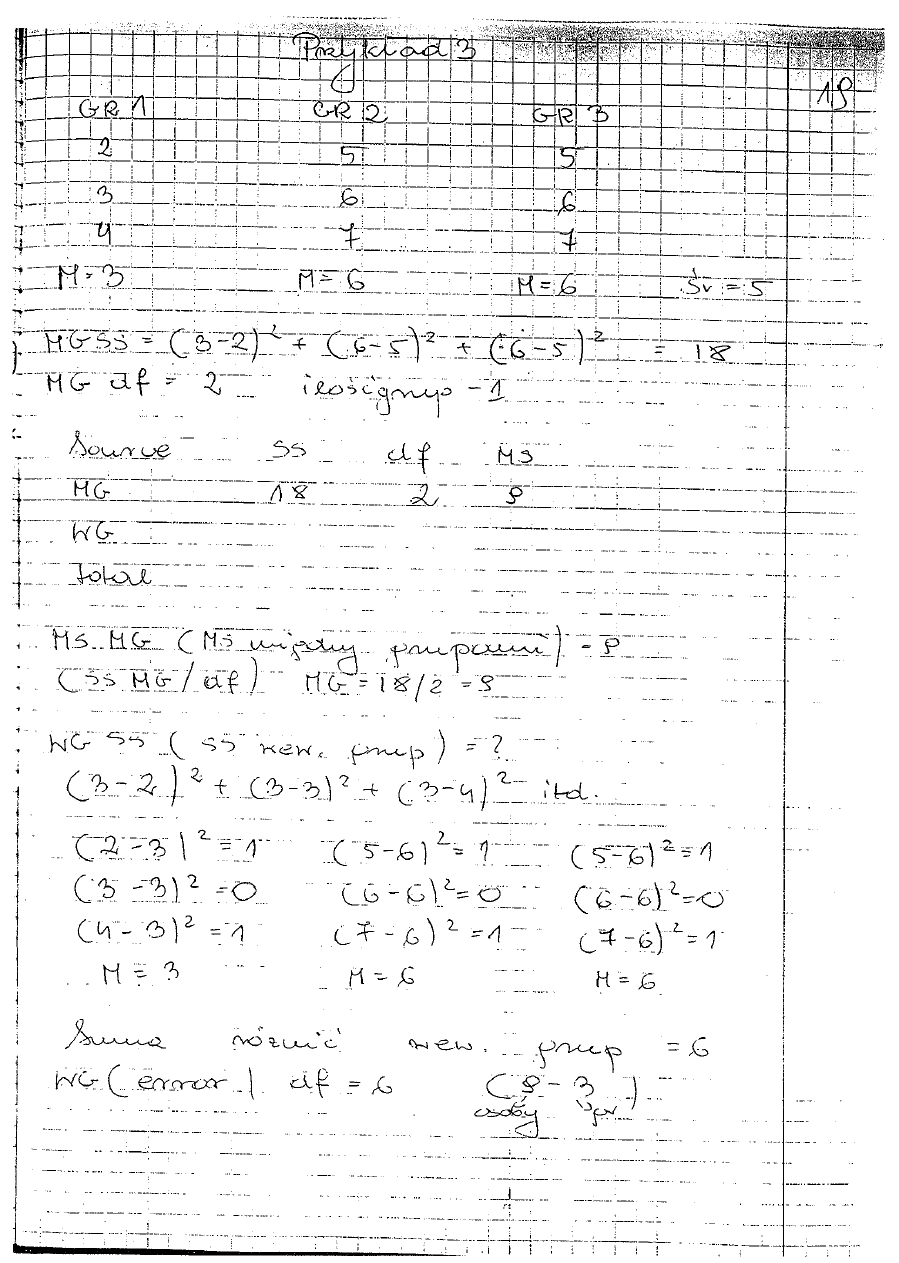 Przykład 3
19
GR 1 GR 2 GR 3
2 5 5
3 6 6
4 7 7
M = 3 M = 6 M = 6 Śr = 5
MGSS = (3-2)² + (6-5)² + (6-5)² = 18
MG df = 2 ilość grup - 1
Source SS df MS
MG 18 2 9
WG
total
MS MG (MS między grupami) = 9
(SS MG/df) MG = 18/2 = 9
WG SS (SS wew. grup) = ?
(3-2)² + (3-3)² + (3-4)² itd.
(2-3)² = 1 (5-6)² = 1 (5-6)² = 1
(3-3)² = 0 (6-6)² = 0 (6-6)² = 0
(4-3)² = 1 (7-6)² = 1 (7-6)² = 1
M = 3 M = 6 M = 6
Suma różnic wew. grup = 6
WG (error) df = 6 (9 - 3)
osoby gr